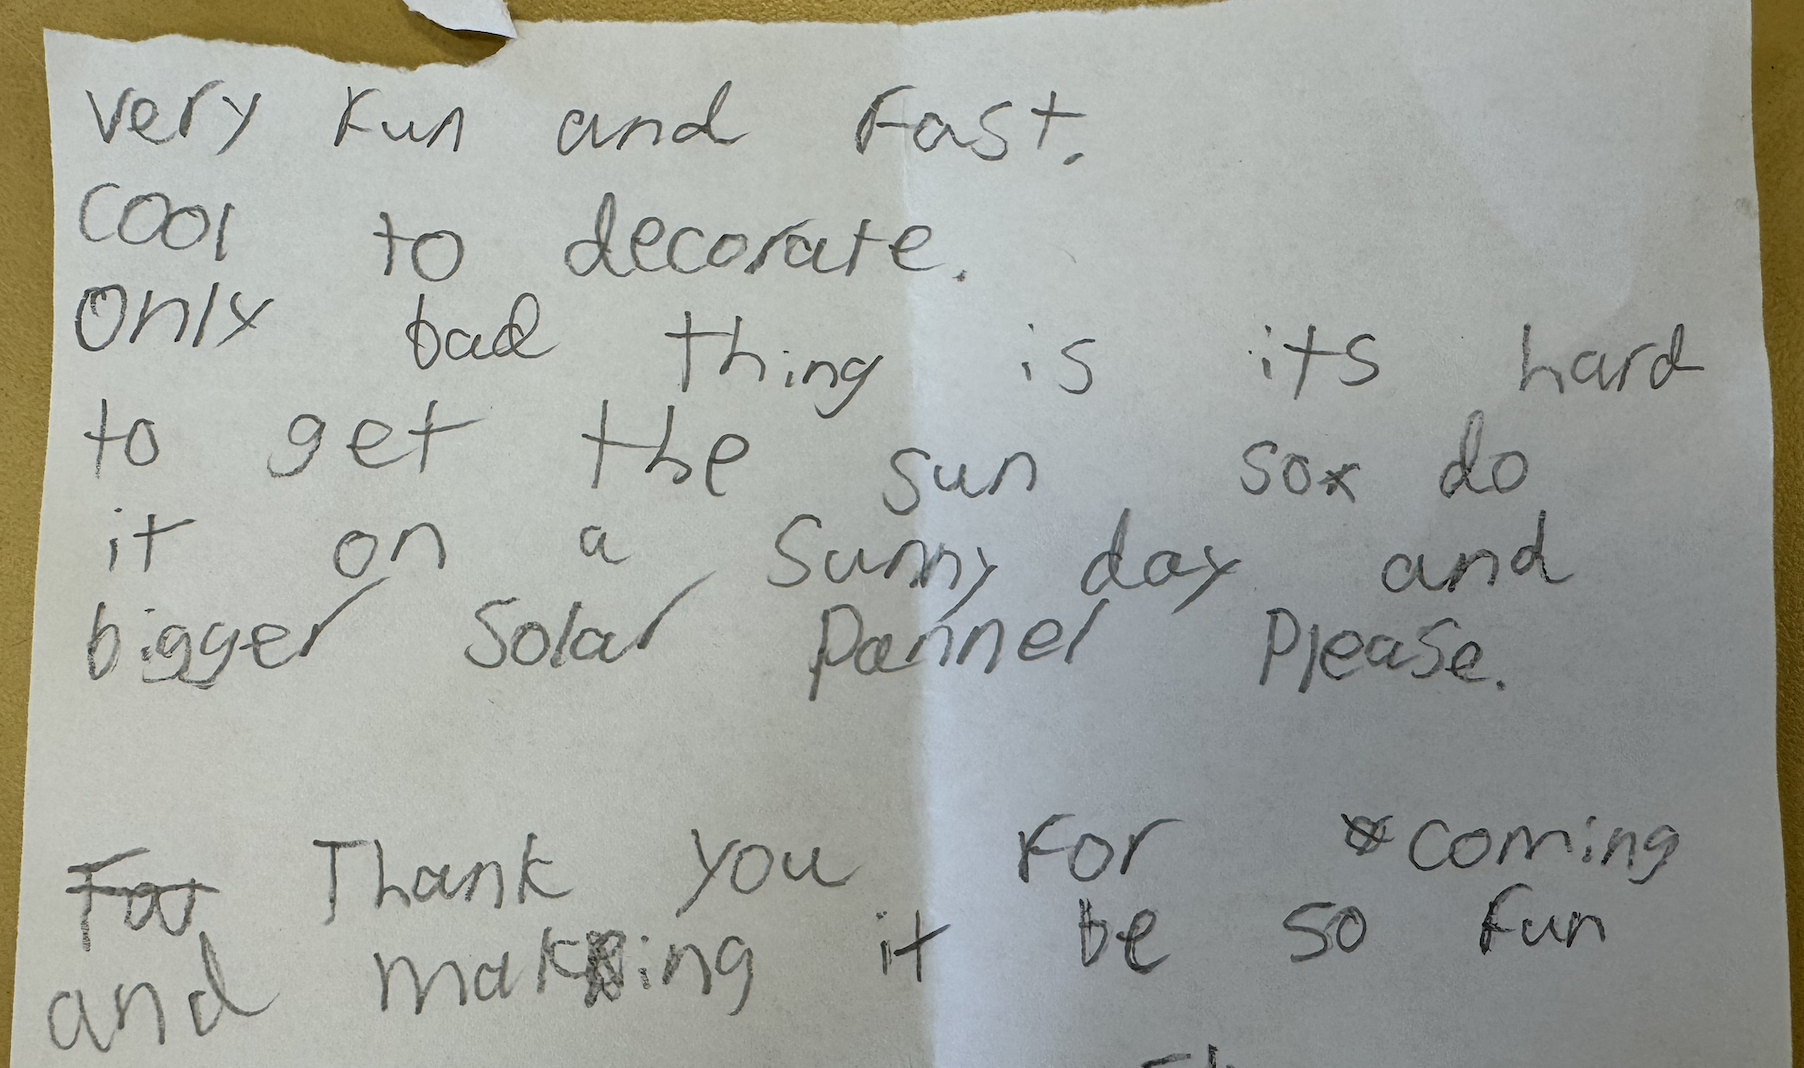 very fun and Fast.
Cool to decorate.
Only bad thing is its hard
to get the sun so do
it on a Sunny day and
bigger Solar Pannel Please.
Thank you For coming
and making it be so fun